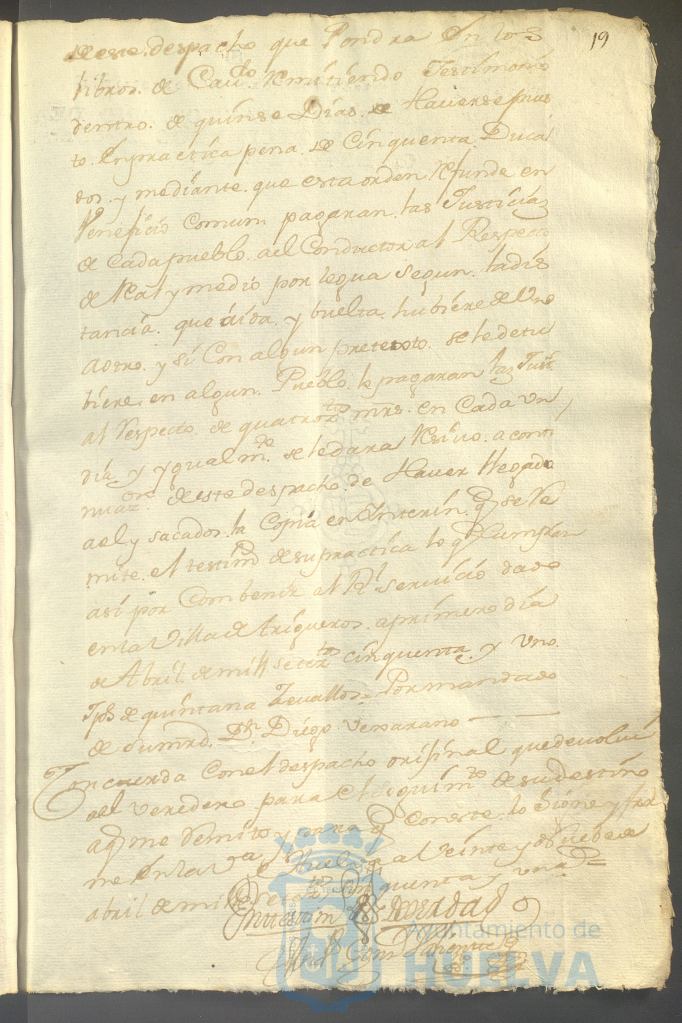 19
de este despacho que Pondra En los
libros de Cavdo Remitiendo Testimonio
dentro de quinse Dias de Haverse pues
to Enpractica pena de Cinquenta Duca
dos y mediante que esta orden Rfunde en
Veneficio Comun pagaran las Justicias
de Cada pueblo ael Conductor al Respecto
de Real y medio por legua Segun la dis
tancia que de ida y buelta hubiere de Uno
a otro y si Con algun pretexto se le detu
biere en algun Pueblo le pagaran las Just
al Respecto de quatrotos mrs en Cada Un
dia y ygualmte se le dara Resivo a conti
nuazon de este despacho de Haver llegado
a el y sacados la Copia en Interin q se Re
mite el testimo de su practica lo q Cumplan
asi por Combenir al Rl servicio dado
en la Villa de trigueros a primero dia
de Abril de mill setetos cinquenta y Uno
Jph de quintana Zevallos = Por mandado
de su mrd Dn Diego Venxarano
Concuerda Con el despacho orixinal que devolvi
ael Veredero para el seguimto de su destino
aq me Remito y para q Conste lo Signe y fir
me En la Va de Huelva a Veinte y Nuebe de
abril de mill setetos Sinquenta y uno =
En testim de Verdad